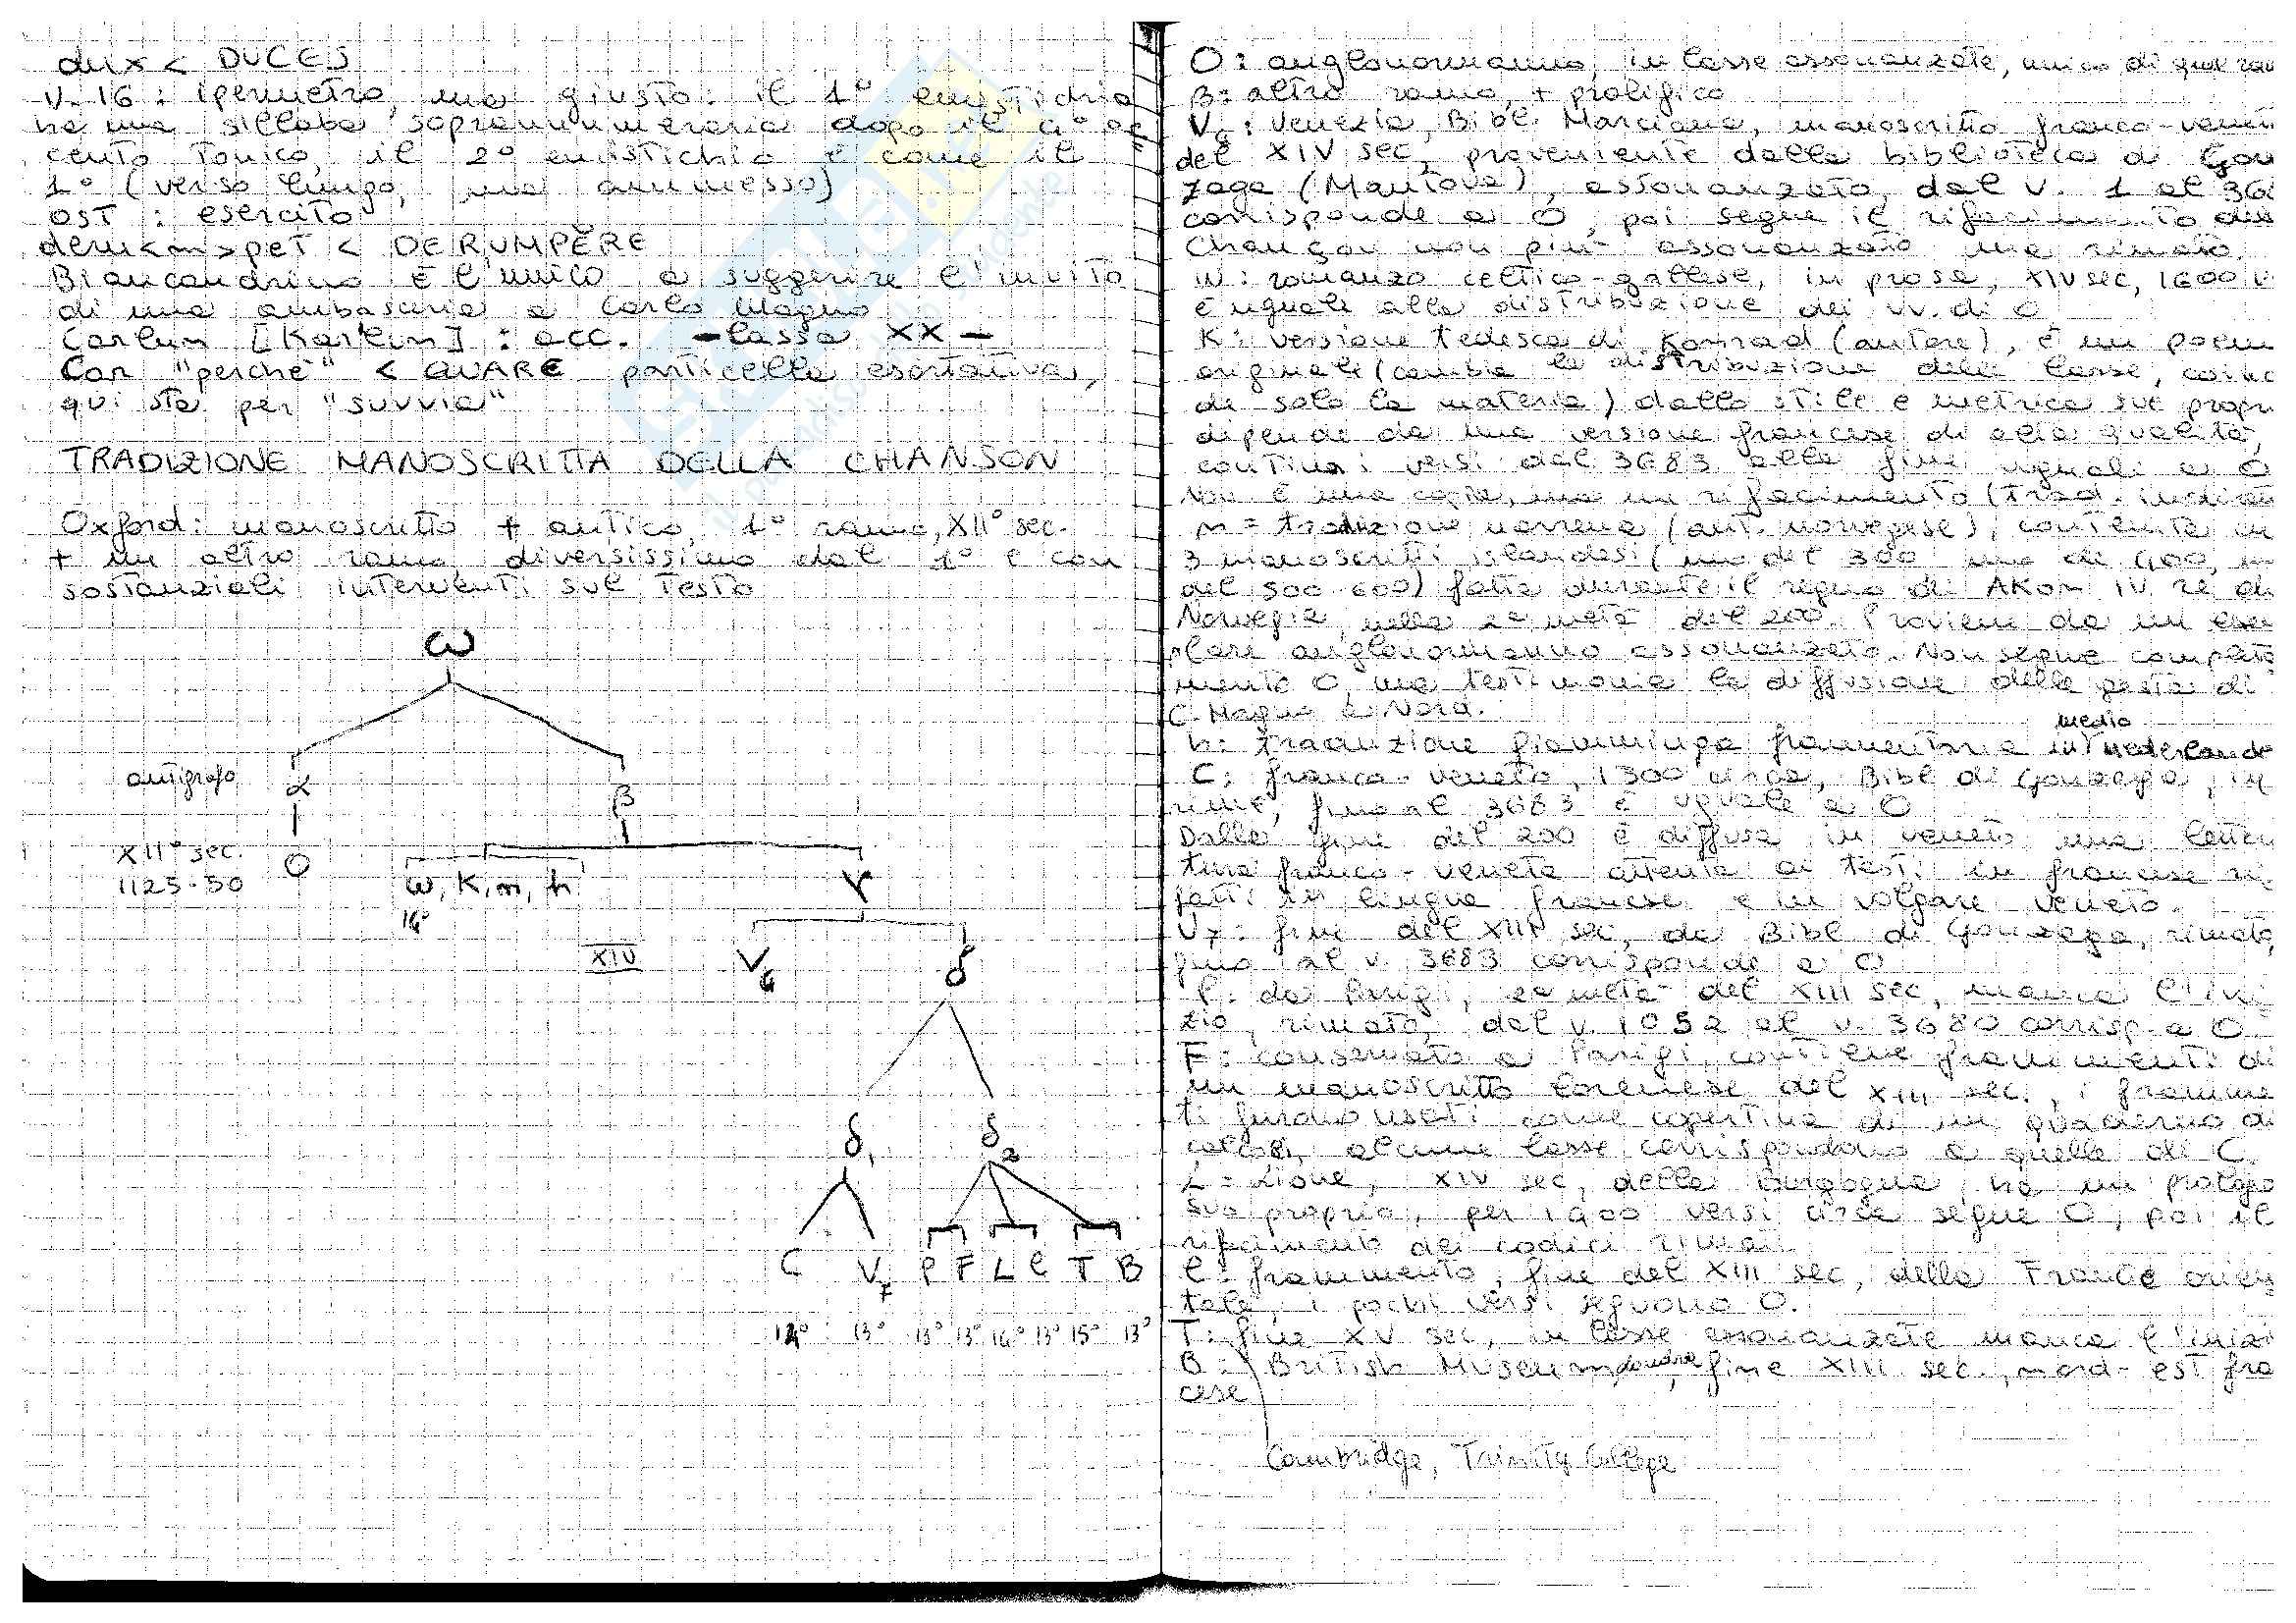 dux < DUCES
V. 16: ipermetro, ma giusto: il 1° emistichio
ha una sillaba soprannumeraria dopo il 4° ac=
cento tonico, il 2° emistichio è come il
1° (verso lungo, ma ammesso)
OST : esercito
deru<m>pet < DERUMPĔRE
Biancandrino è l'unico a suggerire l'invito
di una ambasceria a Carlo Magno
Carlun [Karlun] : acc. - lassa XX -
Car "perché" < QUARE particella esortativa,
qui sta per "suvvia"
TRADIZIONE MANOSCRITTA DELLA CHANSON
Oxford: manoscritto + antico, 1° ramo, XII° sec.
+ un altro ramo diversissimo dal 1° e con
sostanziali interventi sul testo
ω
antigrafo α β
XII° sec. O w, K, n, h γ
1125-50
14°
XIV V4 δ
δ1 δ2
C V7 P F L l T B
14° 13° 13° 13° 14° 13° 15° 13°
O: anglonormanno, in lasse assonanzate, unico di quel
β: altro ramo, + prolifico
V4: Venezia, Bibl. Marciana, manoscritto franco-venet
del XIV sec, proveniente dalla biblioteca di Gon
zaga (Mantova), assonanzato, dal v. 1 al
corrisponde a O, poi segue il rifacimento
Chançon non più assonanzato ma rimato.
w: romanzo celtico-gallese, in prosa, XIV sec, 1600 v
è uguale alla distribuzione dei vv. di O
K: versione tedesca di Konrad (autore), è un poem
originale (cambia la distribuzione delle lasse,
de solo la materia) dallo stile e metrica sue propri
dipende da una versione francese di alta qualità,
contiene i versi dal 3683 alla fine uguali a O
Non è una copia, ma un rifacimento (trad.
n = tradizione norrena (ant. norvegese), contenuta in
3 manoscritti islandesi (uno del 300 uno de 400,
del 500-600) fatta durante il regno di AKon IV re di
Norvegia, nella 2a metà del 200. Proviene da un esem
plare anglonormanno assonanzato. Non segue completa
mente O, ma testimonia la diffusione delle gesta di
C. Magno a Nord.
h: traduzione fiamminga frammentaria in medio nederlande
C: franco-veneto, 1300 circa, Bibl di Gonzaga, in
rime, fino al 3683 è uguale a O
Dalla fine del 200 è diffusa in veneto una letter
tura franco-veneta attenta ai testi in francese ri
fatti in lingua francese e in volgare veneto.
V7: fine del XIII sec, da Bibl di Gonzaga, rimato,
fino al v. 3683 corrisponde a O
P: da Parigi, 2a metà del XIII sec, manca l'ini
zio, rimato, dal v. 1052 al v. 3680 corrisp. a O
F: conservato a Parigi, contiene frammenti di
un manoscritto lorenese del XIII sec., i framme
ti furono usati come copertina di un quaderno di
calcoli, alcune lasse corrispondono a quelle di C.
L = Lione, XIV sec, della Borgogna, ha un prologo
suo proprio, per 1400 versi circa segue O, poi il
rifacimento dei codici rimati
l: frammento, fine del XIII sec, della Francia orien
tale, i pochi versi seguono O.
T: fine XV sec, in lasse assonanzate manca l'inizi
B: British Museum, Londra, fine XIII sec., nord-est fra
cese
Cambridge, Trinity College